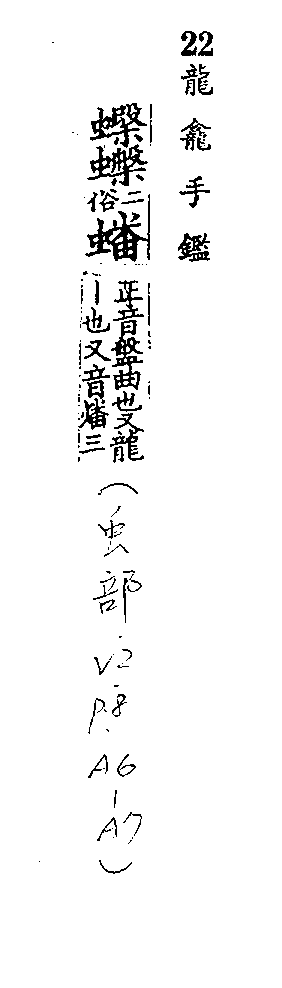 22 龍龕手鑑
二俗 蟠 正音盤曲也又龍
丨也又音燔三
(虫部. V2. P.8 A6-A7)